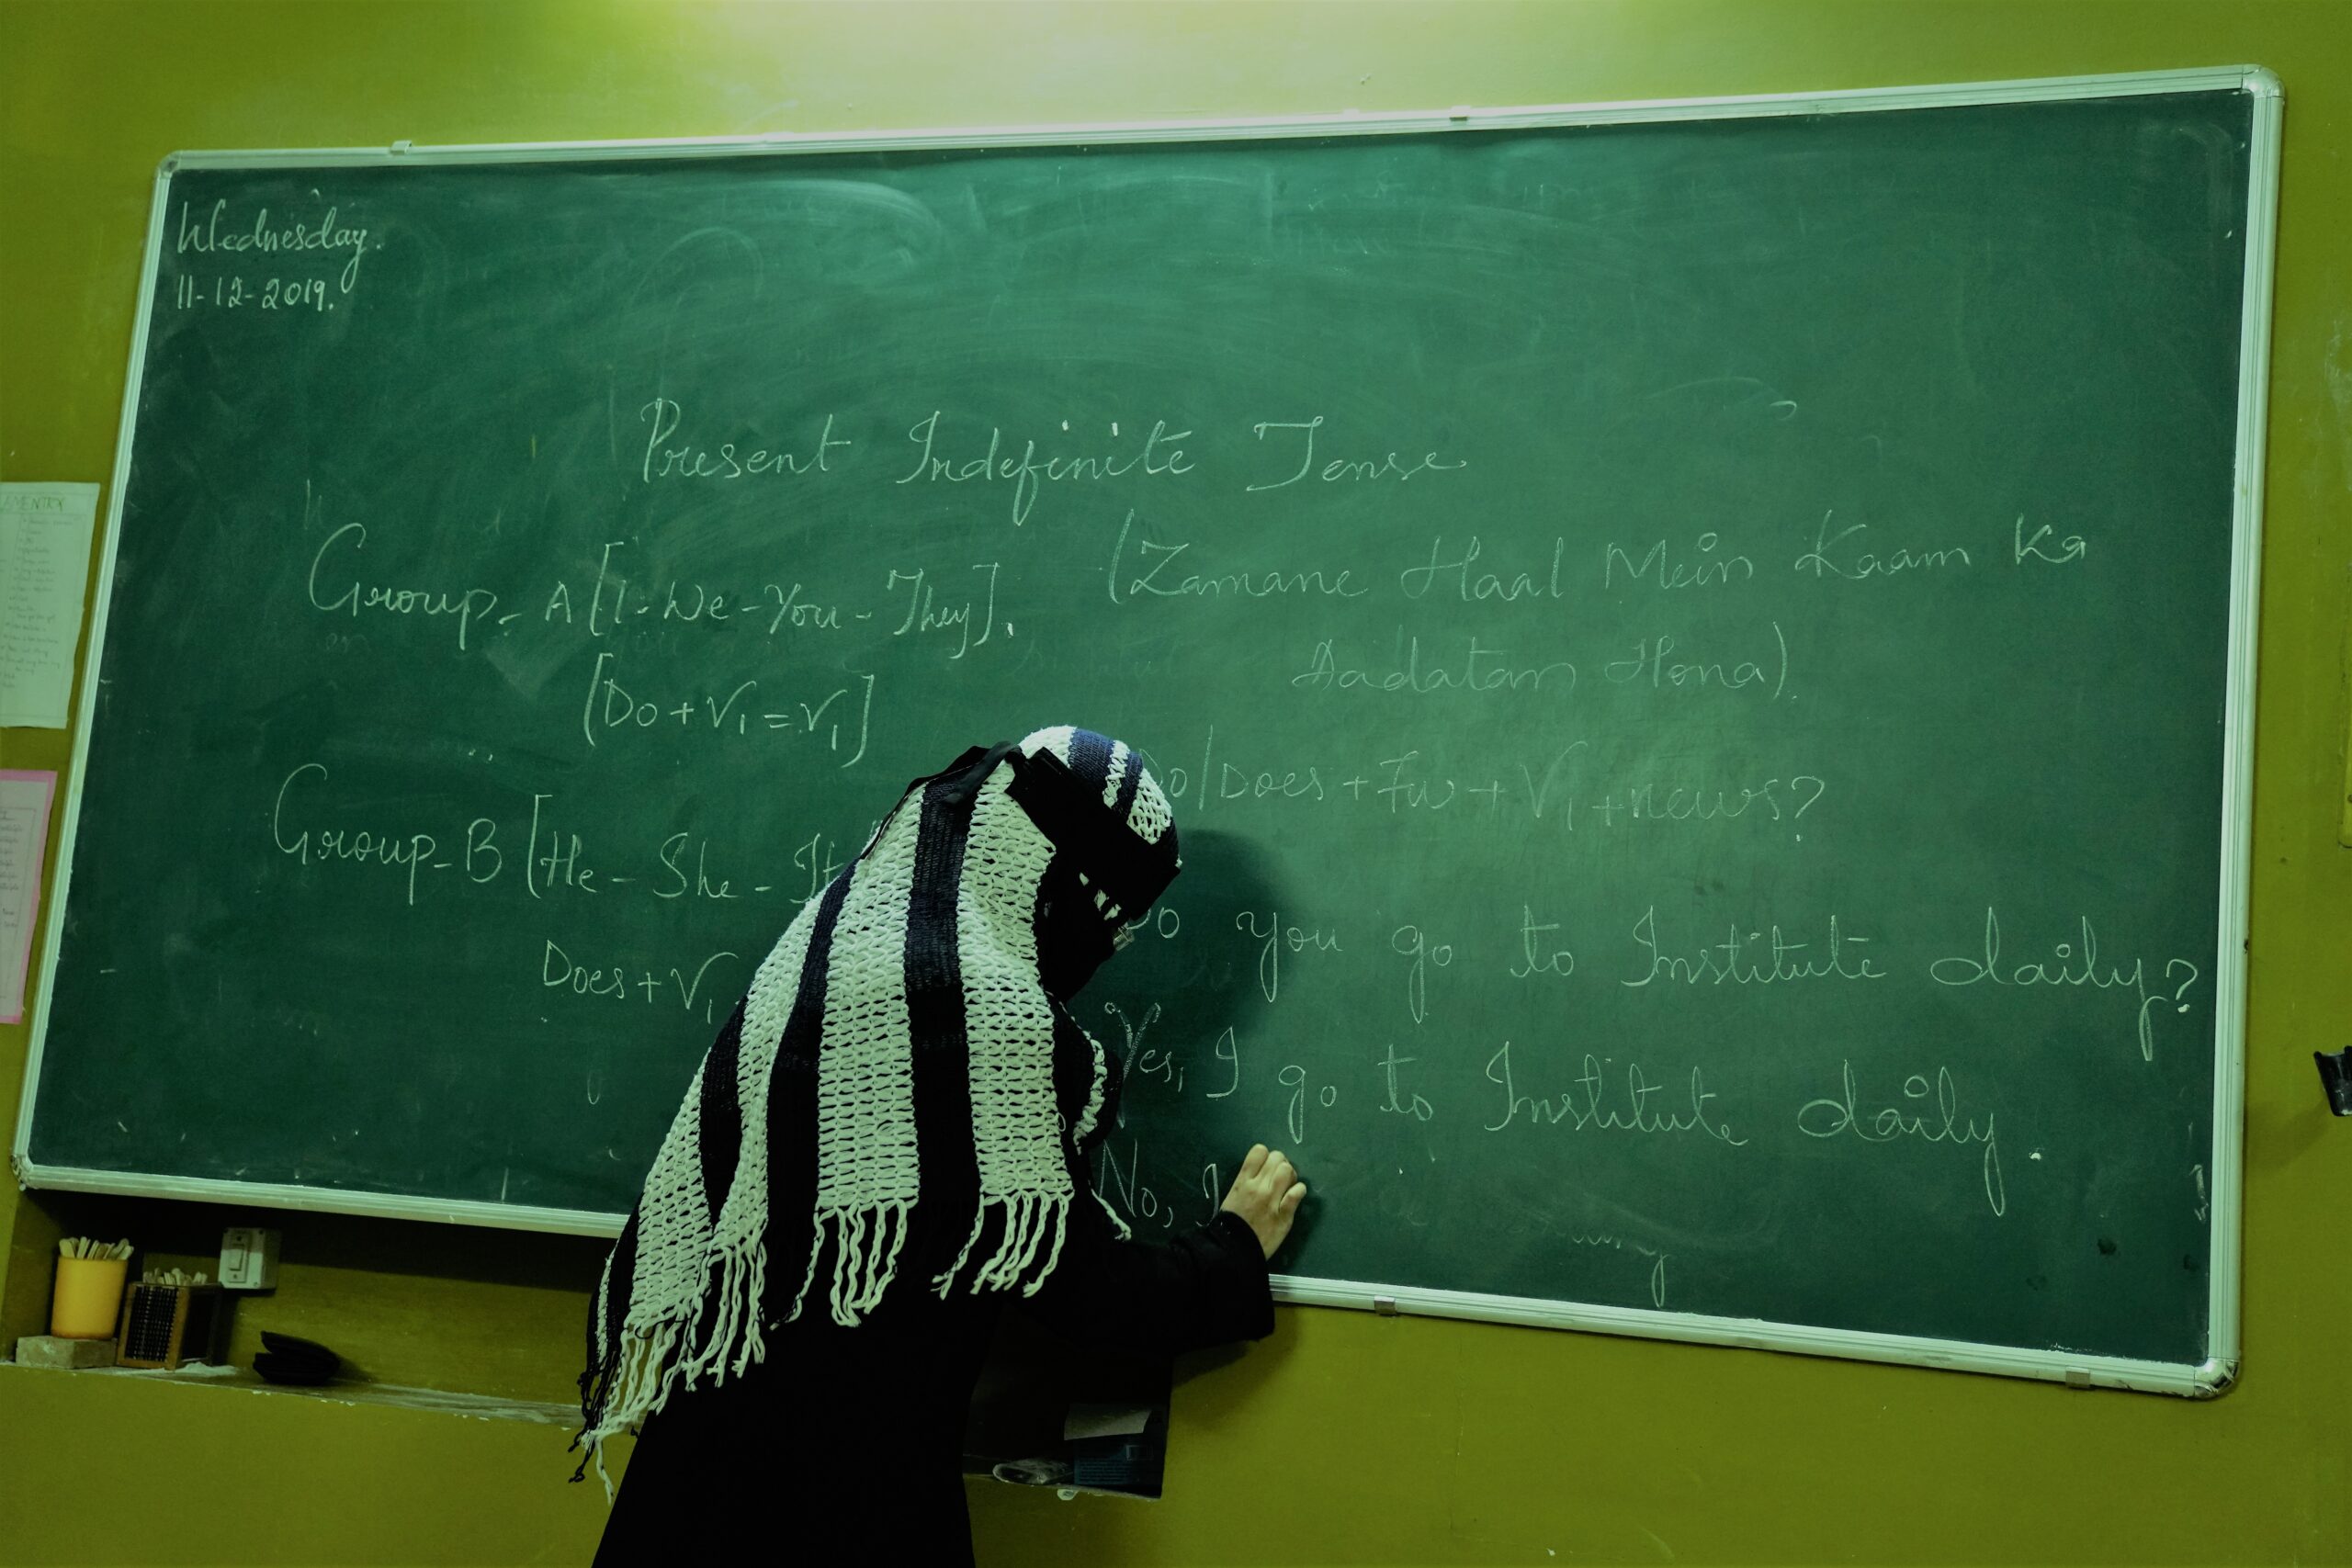 Wednesday.
11-12-2019.
Present Indefinite Tense
Group-A [I-We-You-They].
[Do+V1=V1]
(Zamane Haal Mein Kaam Ka
Aadatan Hona).
Group-B [He-She-It
Does+V1
Do/Does+Fw+V1+news?
Do you go to Institute daily?
Yes, I go to Institute daily.
No, I